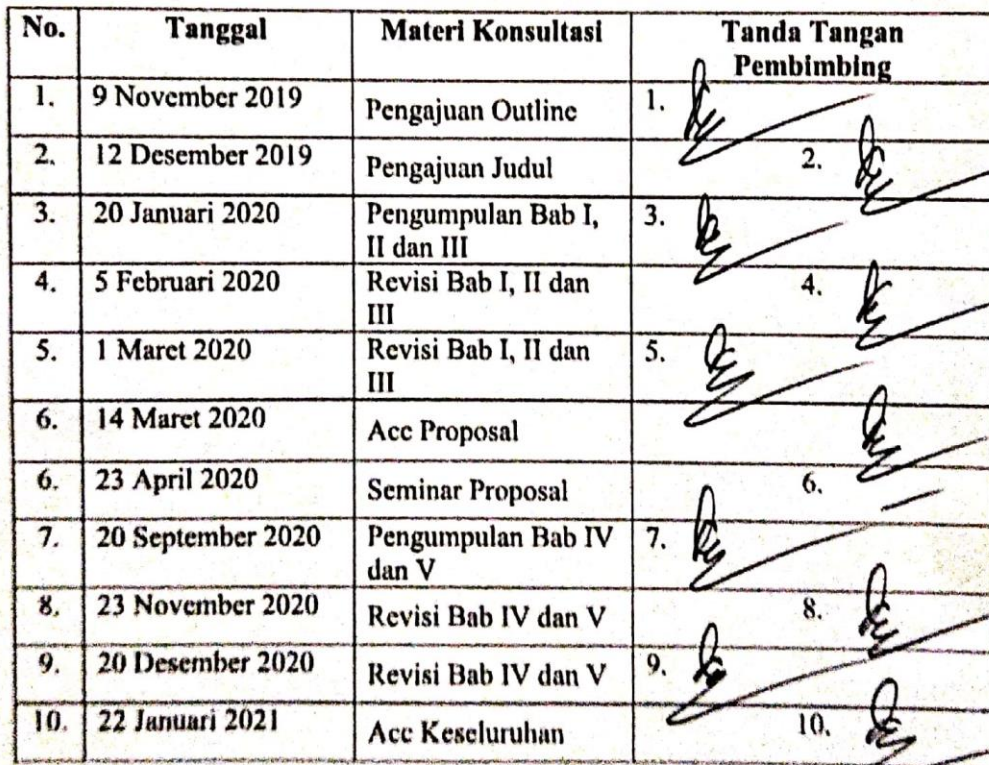 No. Tanggal Materi Konsultasi Tanda Tangan
Pembimbing
1. 9 November 2019 Pengajuan Outline 1.
2. 12 Desember 2019 Pengajuan Judul 2.
3. 20 Januari 2020 Pengumpulan Bab I, 3.
II dan III
4. 5 Februari 2020 Revisi Bab I, II dan 4.
III
5. 1 Maret 2020 Revisi Bab I, II dan 5.
III
6. 14 Maret 2020 Acc Proposal
6. 23 April 2020 Seminar Proposal 6.
7. 20 September 2020 Pengumpulan Bab IV 7.
dan V
8. 23 November 2020 Revisi Bab IV dan V 8.
9. 20 Desember 2020 Revisi Bab IV dan V 9.
10. 22 Januari 2021 Acc Keseluruhan 10.